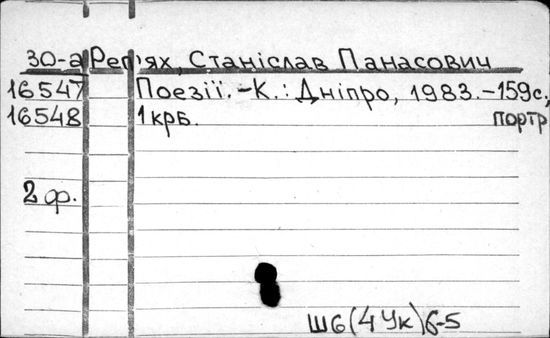 30-а Реп'ях, Станіслав Панасович
16547 Поезії.-К.: Дніпро, 1983.-159с.,
16548 1крб. портр
2 ф.
Ш6(4Ук)6-5